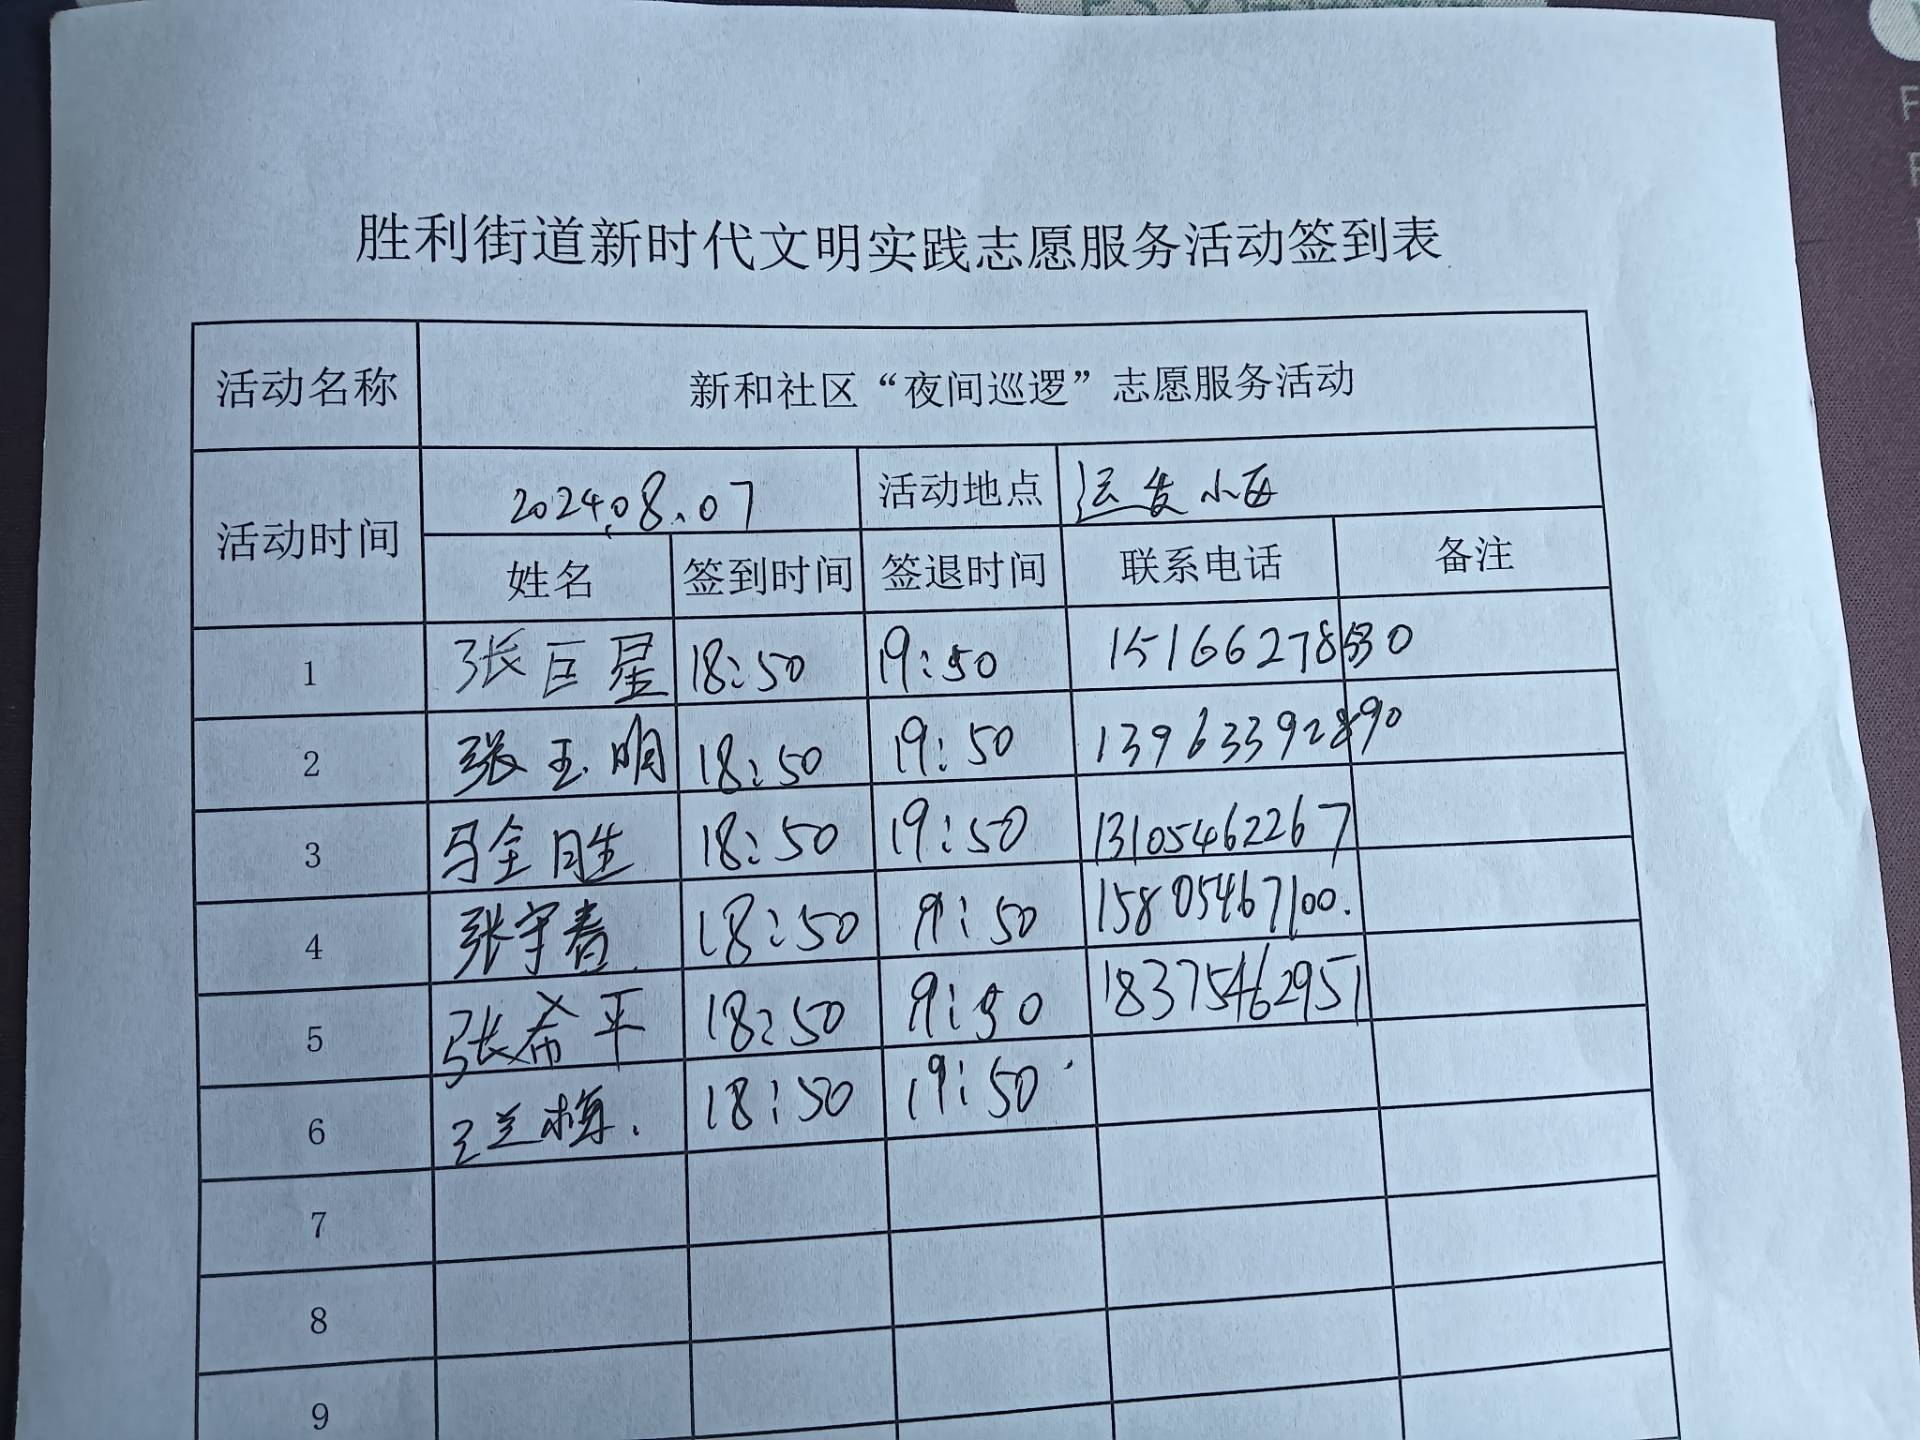 胜利街道新时代文明实践志愿服务活动签到表
活动名称 新和社区“夜间巡逻”志愿服务活动
活动时间 2024.08.07 活动地点 运发小区
姓名 签到时间 签退时间 联系电话 备注
1 张巨星 18:50 19:50 15166278530
2 张玉明 18:50 19:50 13963392890
3 马全胜 18:50 19:50 13105462267
4 张宇春 18:50 19:50 15805467100.
5 张希平 18:50 19:50 18375462951
6 王兰梅. 18:50 19:50
7
8
9